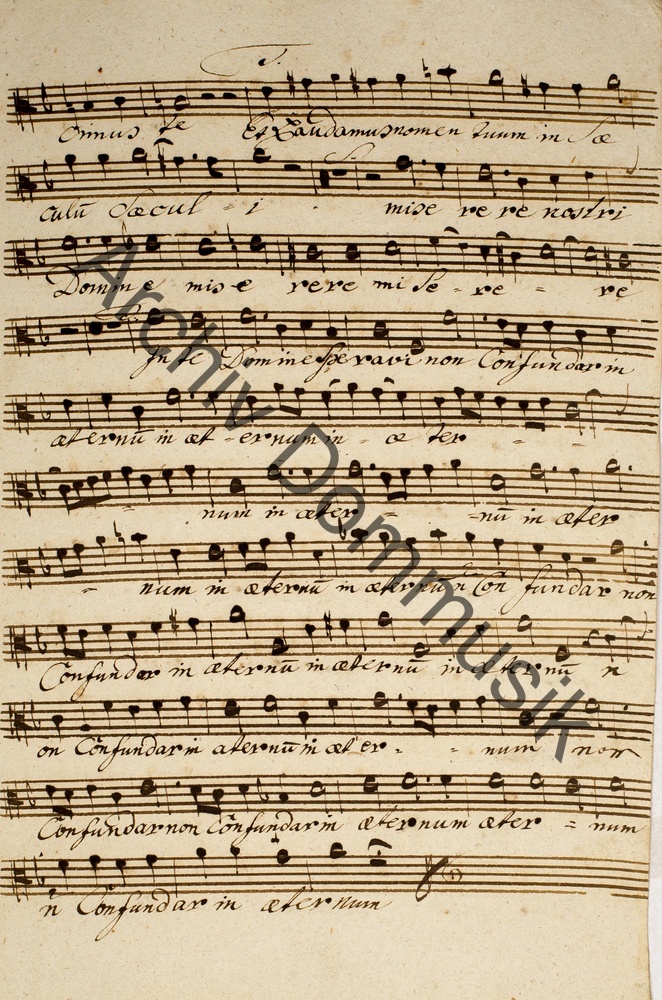 T.
cimus te Et Laudamus nomen tuum in Sæ
culū Sæcul = i S. mise re re nostri
Domine mis=e rere mi Se = re = re
T. In te Domine speravi non Confundar in
æternū in æt = ernum in = æ ter = =
= num in æter = =nū in æter
= num in æternū in æternum Con fundar non
Confundar in æternū in æternū in æternū n
on Confundar in æternū in æt er = = num non
Confundar non Confundar in æternum æter = num
n̄ Confundar in æternum
Archiv Dommusik